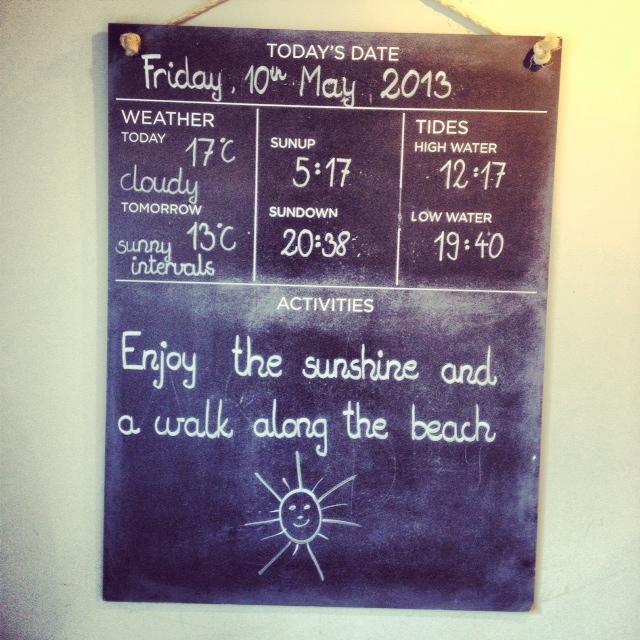 TODAY'S DATE
Friday, 10th May, 2013
WEATHER
TODAY
17°C
cloudy
TOMORROW
13°C
sunny
intervals
SUNUP
5:17
SUNDOWN
20:38
TIDES
HIGH WATER
12:17
LOW WATER
19:40
ACTIVITIES
Enjoy the sunshine and
a walk along the beach